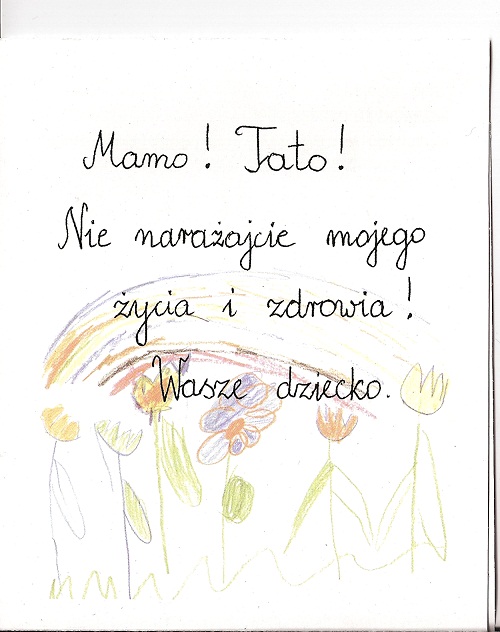 Mamo! Tato!
Nie narażajcie mojego
życia i zdrowia!
Wasze dziecko.